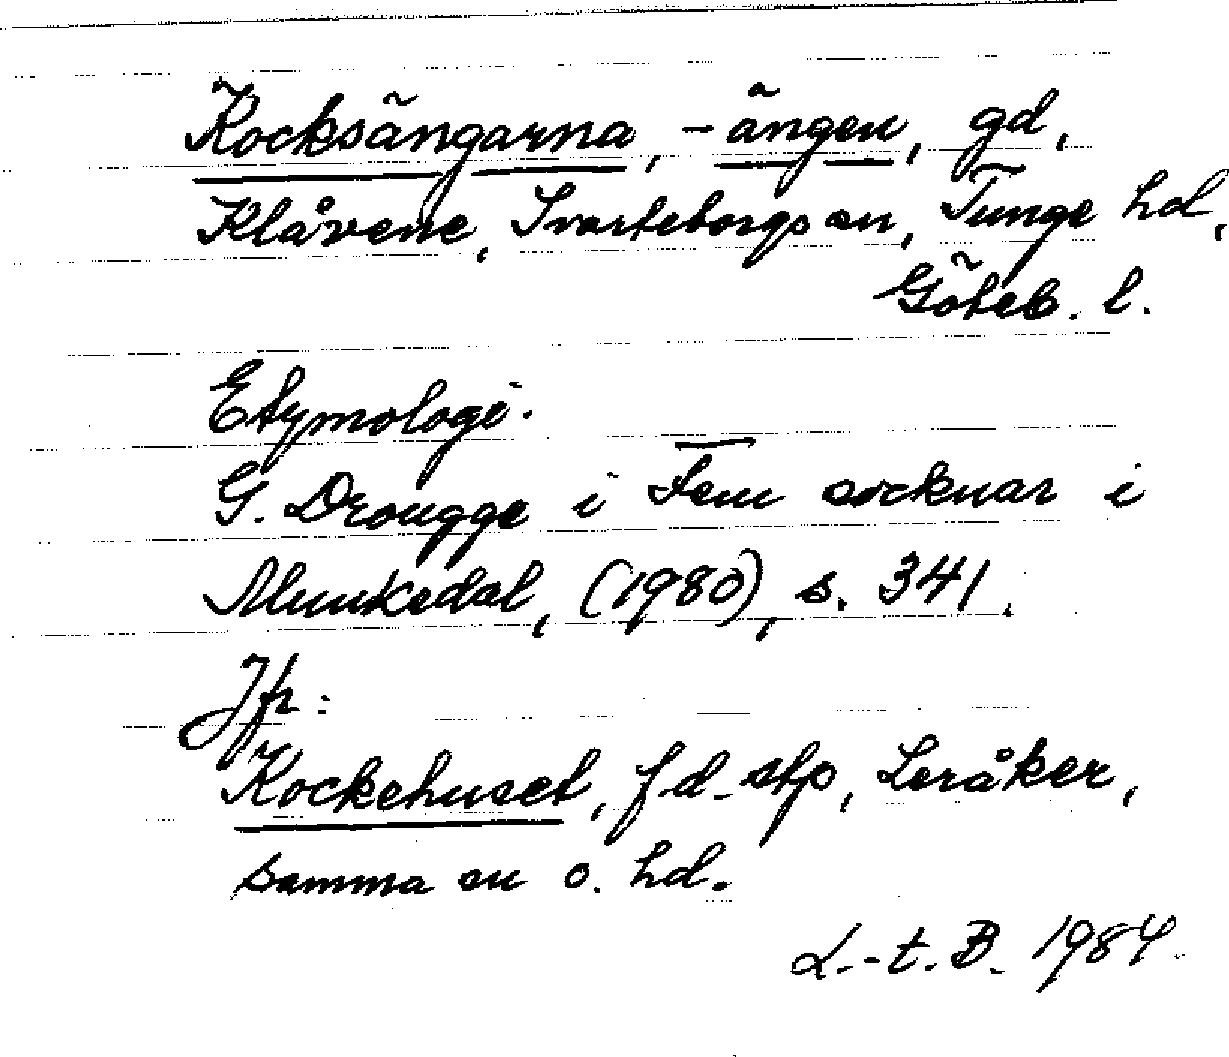 Kocksängarna, -ängen, gd,
Klåvene, Svarteborgs sn, Tunge hd,
Göteb. l.
Etymologi.
G. Drougge i Fem socknar i
Munkedal, (1980), s. 341.
Jfr:
Kockehuset, f d. stp, Leråker,
samma sn o. hd.
L.-t. B. 1984